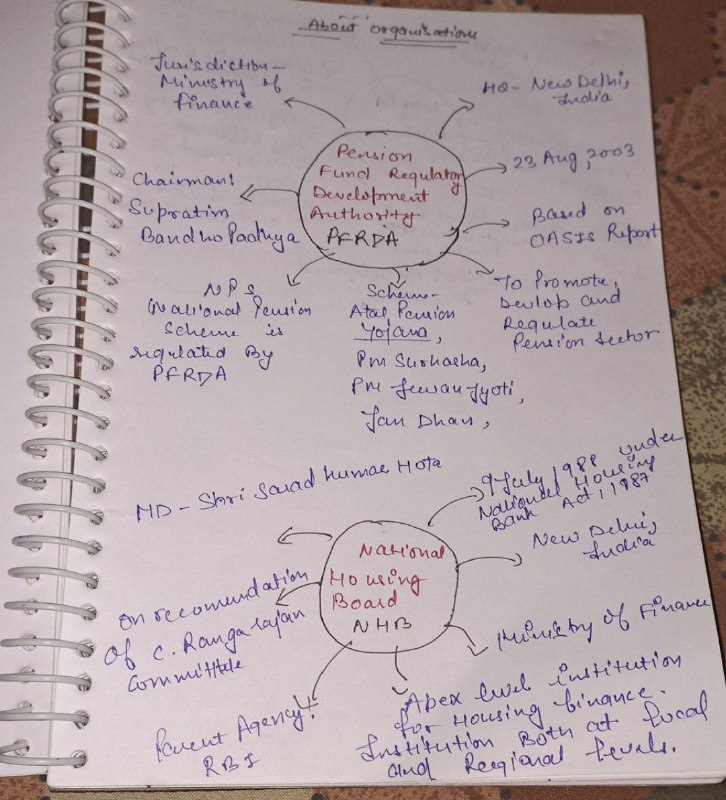 About Organisations
Jurisdiction -
Ministry of
finance
HQ - New Delhi,
India
Pension
Fund Regulatory
Development
Authority
PFRDA
23 Aug, 2003
Chairman:
Supratim
Bandhopadhya
Based on
OASIS Report
NPS
(National Pension
Scheme is
regulated By
PFRDA
Scheme-
Atal Pension
Yojana,
Pm Surkasha,
PM Jewan Jyoti,
Jan Dhan,
To Promote,
Devlop and
Regulate
Pension Sector
MD - Shri Sarad Kumar Hota
9 July, 1988 under
National Housing
Bank Act, 1987
National
Housing
Board
NHB
New Delhi,
India
On recomendation
of C. Rangarajan
Committee
Ministry of Finance
Parent Agency:
RBI
Apex level institution
for Housing finance.
Institution Both at local
and Regional levels.